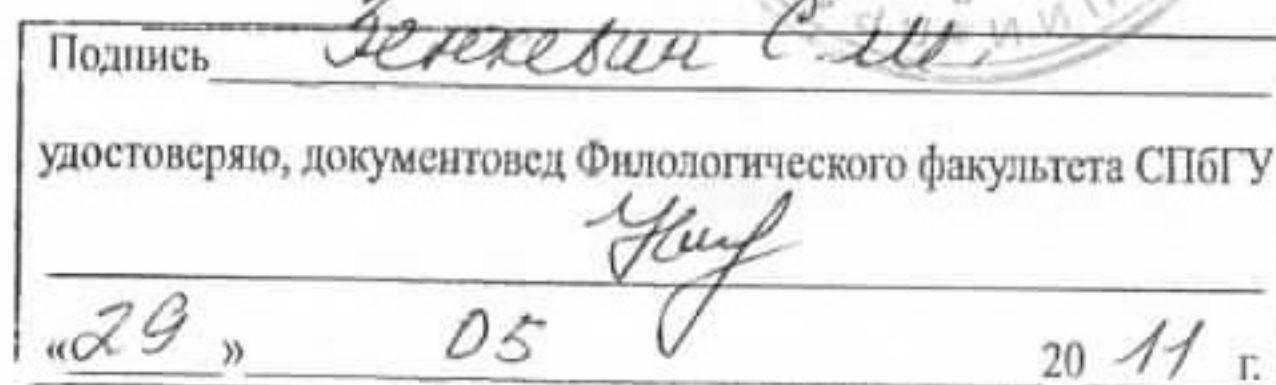 Подпись Зенкевич С. И.
удостоверяю, документовед Филологического факультета СПбГУ
«29» 05 2011 г.